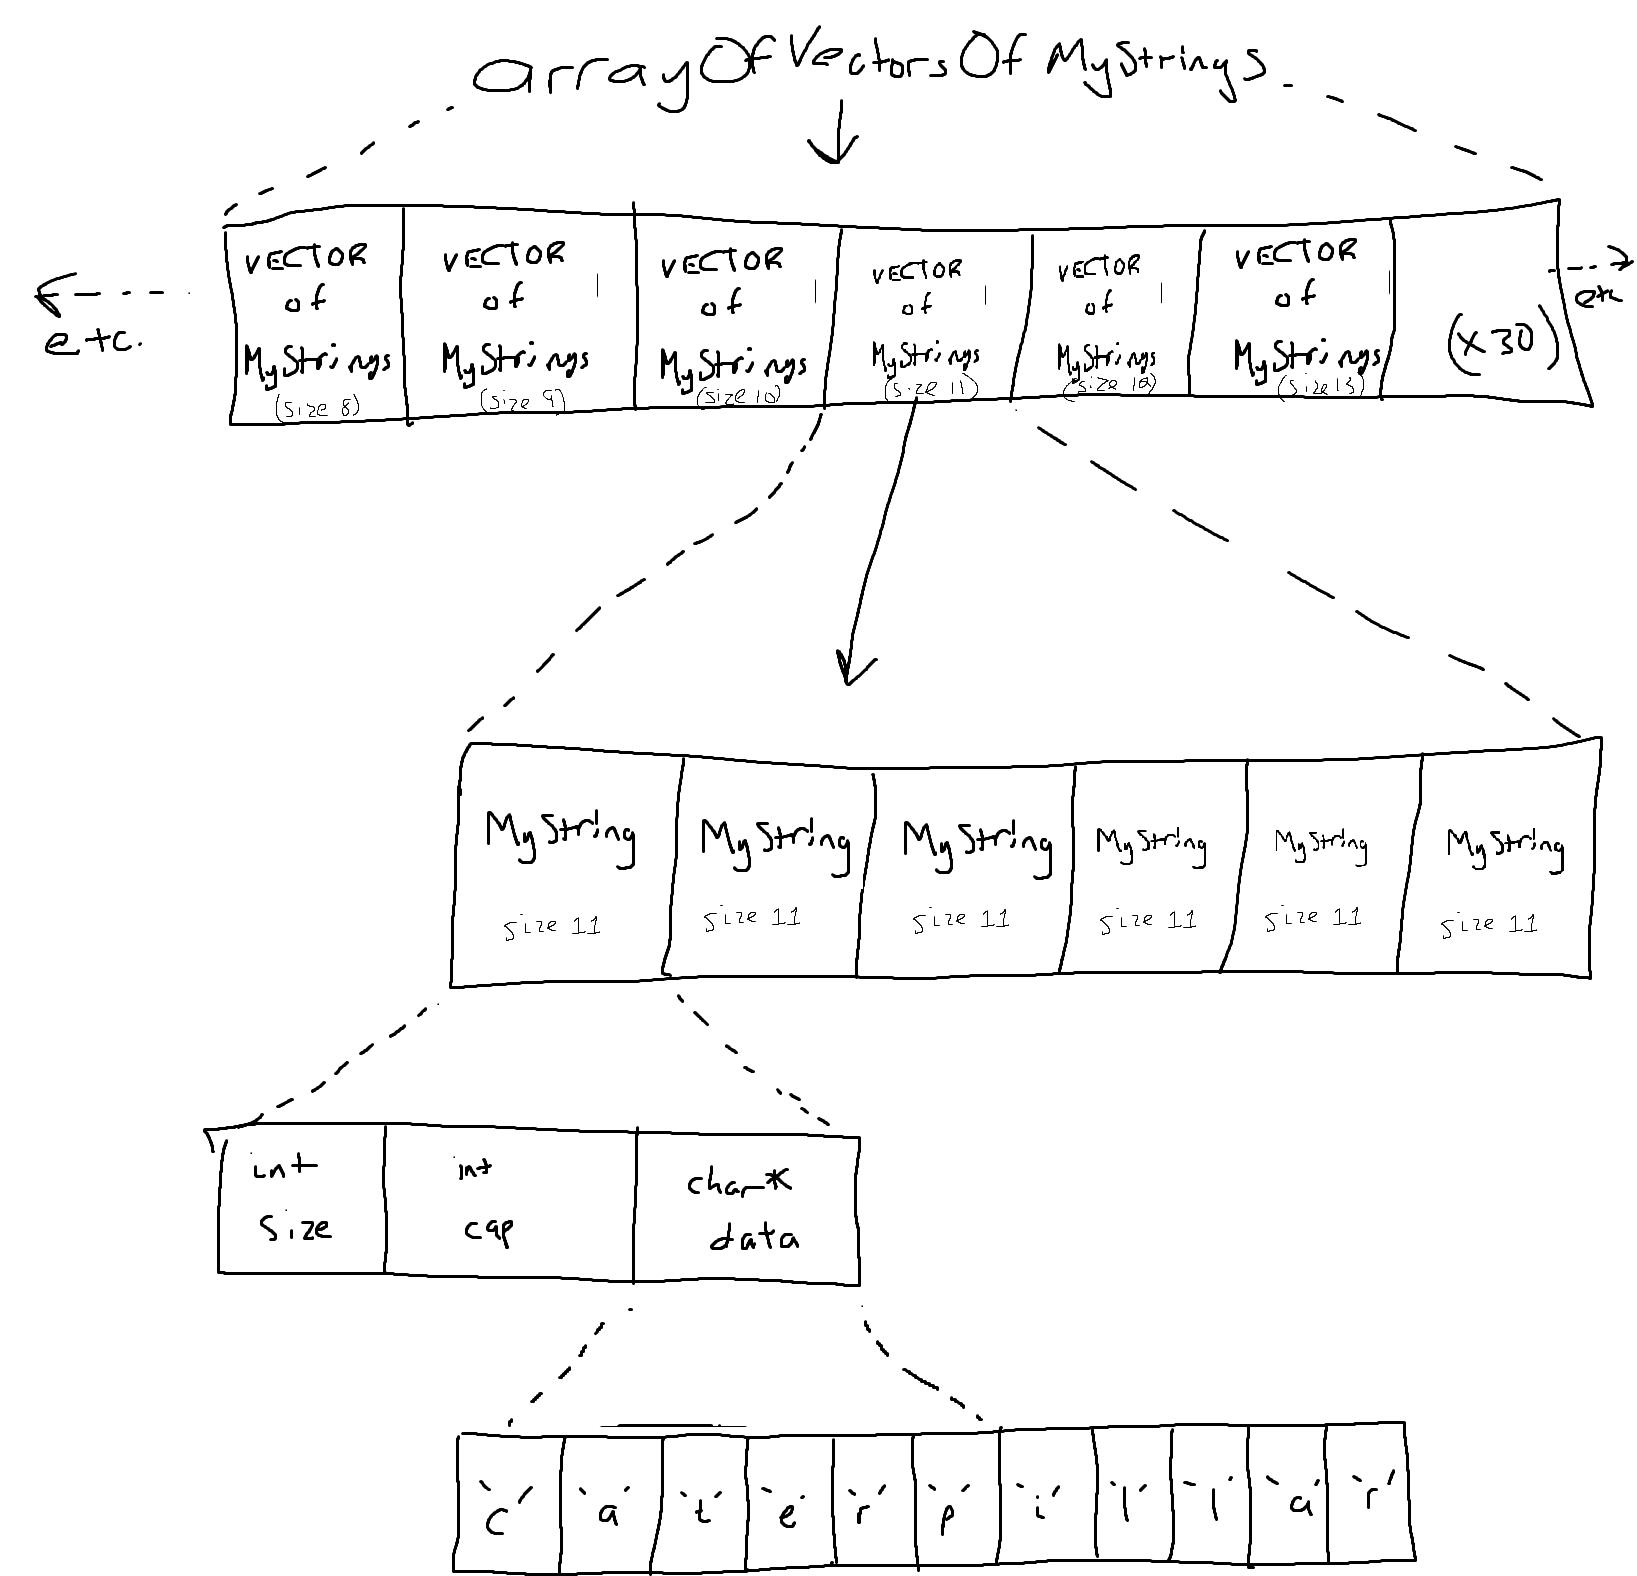 arrayOfVectorsOfMyStrings
etc.
VECTOR of MyStrings (size 8)
VECTOR of MyStrings (size 9)
VECTOR of MyStrings (size 10)
VECTOR of MyStrings (size 11)
VECTOR of MyStrings
VECTOR of MyStrings (size 13)
(x30)
etc
MyString size 11
MyString size 11
MyString size 11
MyString size 11
MyString size 11
MyString size 11
int size
int cap
char* data
'c' 'a' 't' 'e' 'r' 'p' 'i' 'l' 'l' 'a' 'r'